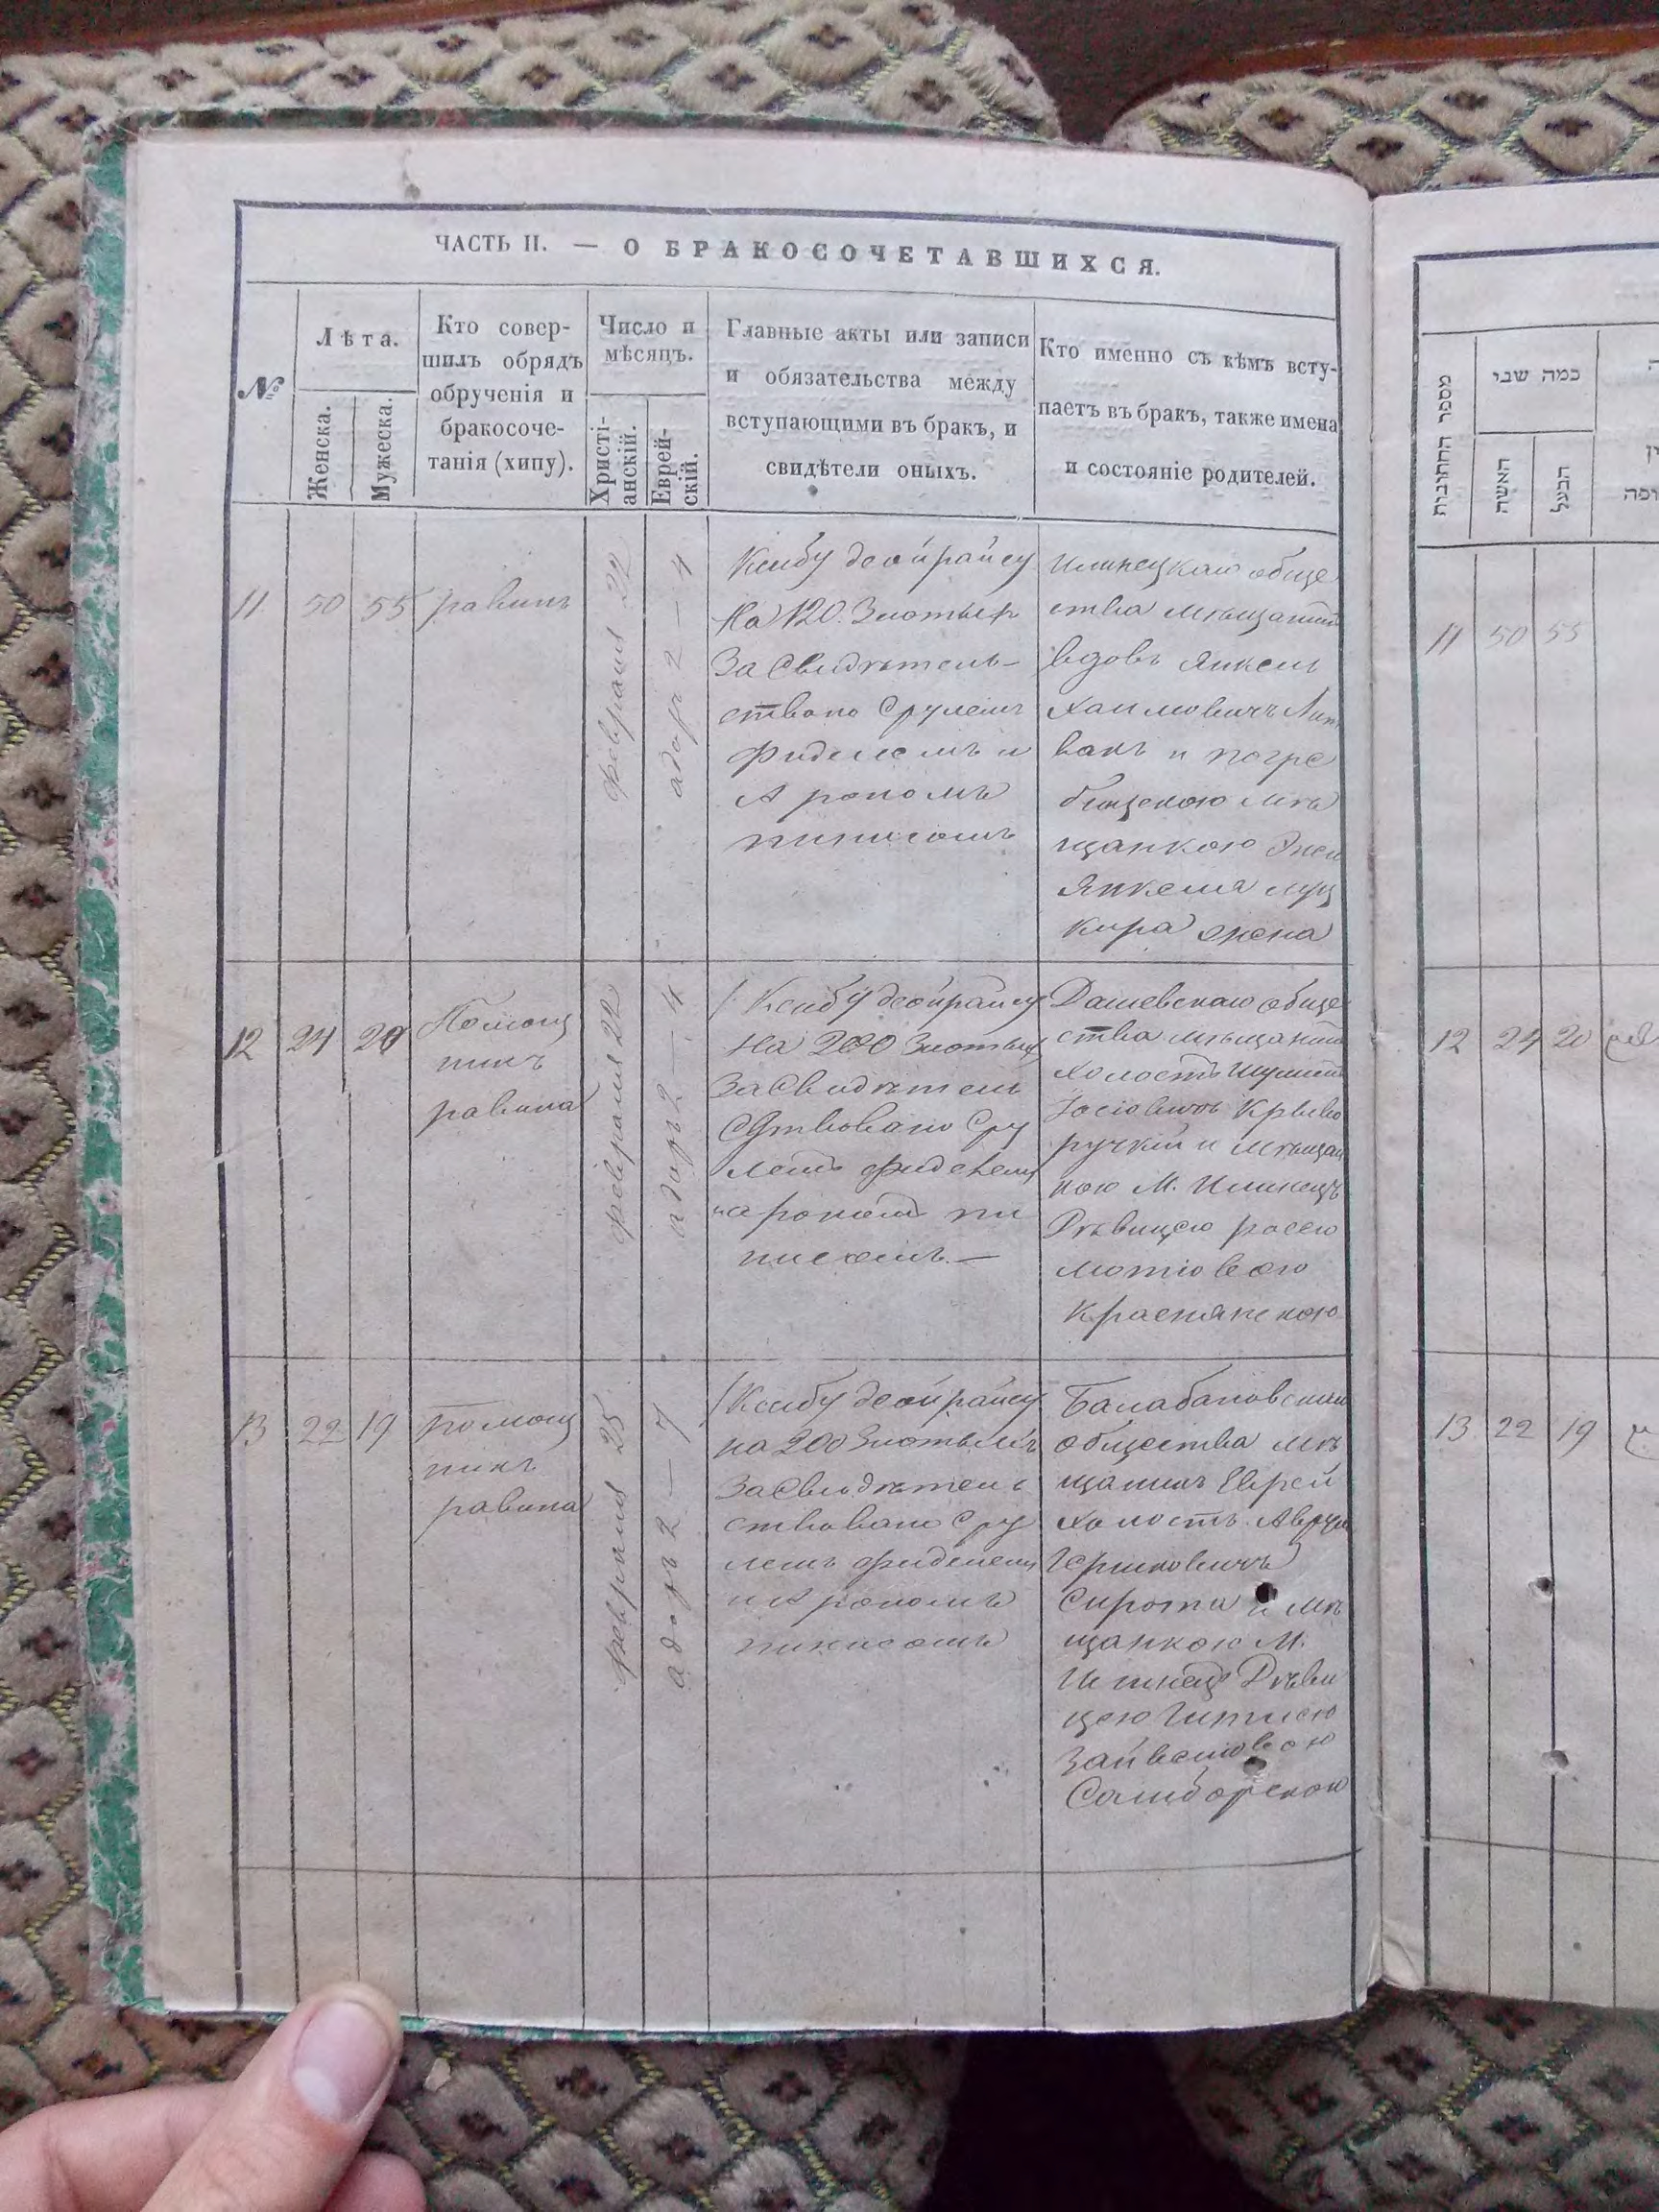 ЧАСТЬ II. — О БРАКОСОЧЕТАВШИХСЯ.
№
Лѣта.
Женска.
Мужеска.
Кто совер-
шилъ обрядъ
обрученія и
бракосоче-
танія (хипу).
Число и
мѣсяцъ.
Христі-
анскій.
Еврей-
скій.
Главные акты или записи
и обязательства между
вступающими въ бракъ, и
свидѣтели оныхъ.
Кто именно съ кѣмъ всту-
паетъ въ бракъ, также имена
и состояніе родителей.
11
50
55
равинъ
февраля 22
адаръ 2 — 4
Ксибу деойрайсу
На 120 Злотыхъ
Засвидѣтель-
ствано Срулемъ
Фиделемъ и
Арономъ
Илинецкаго обще
ства мѣщанинъ
вдовъ Янкель
Хаимовичъ Лит
вакъ и погре
бищскою мѣ
щанкою
Янкеля
жена
12
24
20
Помощ
никъ
равина
февраля 22
адаръ 2 — 4
Ксибу деойрайсу
На 200 Злотыхъ
Засвидѣтель
ствовано Сру
лемъ Фиделемъ
и Арономъ
Дашевскаго обще
ства мѣщанинъ
холостъ
Іосіовичъ Криво
ручкій и мѣщан
кою М. Илинецъ
Дѣвицею расею
мотіовою
Краснянскою
13
22
19
помощ
никъ
равина
февраля 25
адаръ 2 — 7
Ксибу деойрайсу
на 200 Злотыхъ
Засвидѣтель
ствовано Сру
лемъ Фиделемъ
и Арономъ
Балабановскаго
общества мѣ
щанинъ Еврей
холостъ Аврум
Гершковичъ
Сирота и мѣ
щанкою М.
Илинецъ Дѣви
цею
Зайвеліовою
Самборскою
מספר החתונות
כמה שני
האשה
הבעל
11
50
55
12
24
20
13
22
19